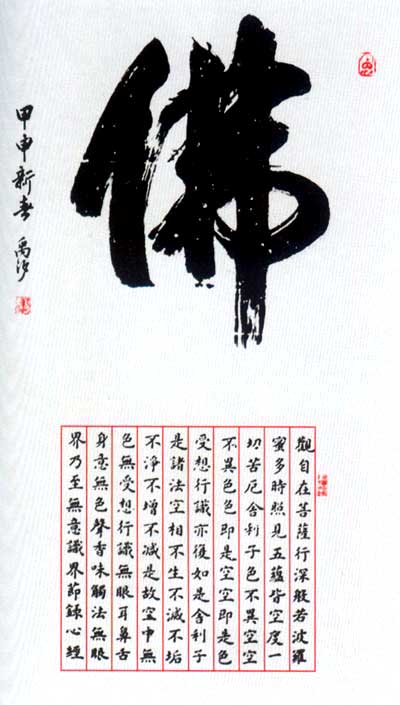 佛
甲申新春 禹
觀自在菩薩行深般若波羅
蜜多時照見五蘊皆空度一
切苦厄舍利子色不異空空
不異色色即是空空即是色
受想行識亦復如是舍利子
是諸法空相不生不滅不垢
不淨不增不減是故空中無
色無受想行識無眼耳鼻舌
身意無色聲香味觸法無眼
界乃至無意識界節錄心經